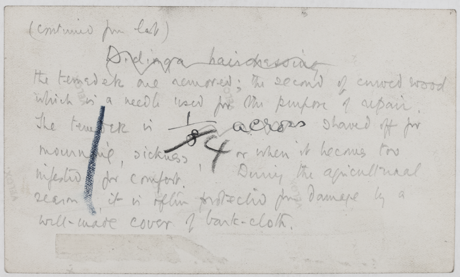 (continued from last)
Didinga hairdressing
the temedek are removed; the second of curved wood
which is a needle used for the purpose of repair.
The temedek is 1/4 across shaved off for
mourning, sickness, or when it becomes too
infested for comfort. During the agricultural
season it is often protected from damage by a
well-made cover of bark-cloth.